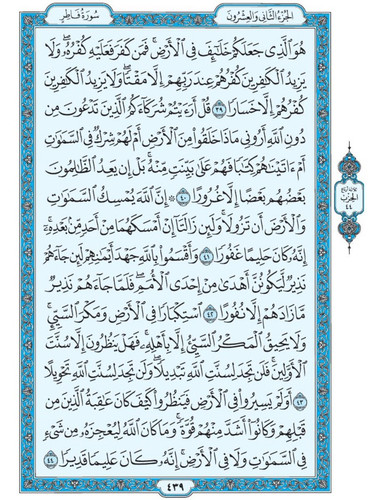 سُورَةُ فَاطِرٍ
الجُزْءُ الثَّانِي وَالعِشْرُونَ
هُوَ ٱلَّذِى جَعَلَكُمْ خَلَٰٓئِفَ فِى ٱلْأَرْضِ ۚ فَمَن كَفَرَ فَعَلَيْهِ كُفْرُهُۥ ۖ وَلَا
يَزِيدُ ٱلْكَٰفِرِينَ كُفْرُهُمْ عِندَ رَبِّهِمْ إِلَّا مَقْتًا ۖ وَلَا يَزِيدُ ٱلْكَٰفِرِينَ
كُفْرُهُمْ إِلَّا خَسَارًا ٣٩ قُلْ أَرَءَيْتُمْ شُرَكَآءَكُمُ ٱلَّذِينَ تَدْعُونَ مِن
دُونِ ٱللَّهِ أَرُونِى مَاذَا خَلَقُوا۟ مِنَ ٱلْأَرْضِ أَمْ لَهُمْ شِرْكٌ فِى ٱلسَّمَٰوَٰتِ
أَمْ ءَاتَيْنَٰهُمْ كِتَٰبًا فَهُمْ عَلَىٰ بَيِّنَتٍ مِّنْهُ ۚ بَلْ إِن يَعِدُ ٱلظَّٰلِمُونَ
بَعْضُهُم بَعْضًا إِلَّا غُرُورًا ٤٠ ۞ إِنَّ ٱللَّهَ يُمْسِكُ ٱلسَّمَٰوَٰتِ
وَٱلْأَرْضَ أَن تَزُولَا ۚ وَلَئِن زَالَتَآ إِنْ أَمْسَكَهُمَا مِنْ أَحَدٍ مِّنۢ بَعْدِهِۦٓ ۚ
إِنَّهُۥ كَانَ حَلِيمًا غَفُورًا ٤١ وَأَقْسَمُوا۟ بِٱللَّهِ جَهْدَ أَيْمَٰنِهِمْ لَئِن جَآءَهُمْ
نَذِيرٌ لَّيَكُونُنَّ أَهْدَىٰ مِنْ إِحْدَى ٱلْأُمَمِ ۖ فَلَمَّا جَآءَهُمْ نَذِيرٌ
مَّا زَادَهُمْ إِلَّا نُفُورًا ٤٢ ٱسْتِكْبَارًا فِى ٱلْأَرْضِ وَمَكْرَ ٱلسَّيِّئِ ۚ
وَلَا يَحِيقُ ٱلْمَكْرُ ٱلسَّيِّئُ إِلَّا بِأَهْلِهِۦ ۚ فَهَلْ يَنظُرُونَ إِلَّا سُنَّتَ
ٱلْأَوَّلِينَ ۚ فَلَن تَجِدَ لِسُنَّتِ ٱللَّهِ تَبْدِيلًا ۖ وَلَن تَجِدَ لِسُنَّتِ ٱللَّهِ تَحْوِيلًا
٤٣ أَوَلَمْ يَسِيرُوا۟ فِى ٱلْأَرْضِ فَيَنظُرُوا۟ كَيْفَ كَانَ عَٰقِبَةُ ٱلَّذِينَ مِن
قَبْلِهِمْ وَكَانُوٓا۟ أَشَدَّ مِنْهُمْ قُوَّةً ۚ وَمَا كَانَ ٱللَّهُ لِيُعْجِزَهُۥ مِن شَىْءٍ
فِى ٱلسَّمَٰوَٰتِ وَلَا فِى ٱلْأَرْضِ ۚ إِنَّهُۥ كَانَ عَلِيمًا قَدِيرًا ٤٤
٤٣٩
الحِزْب
٤٤